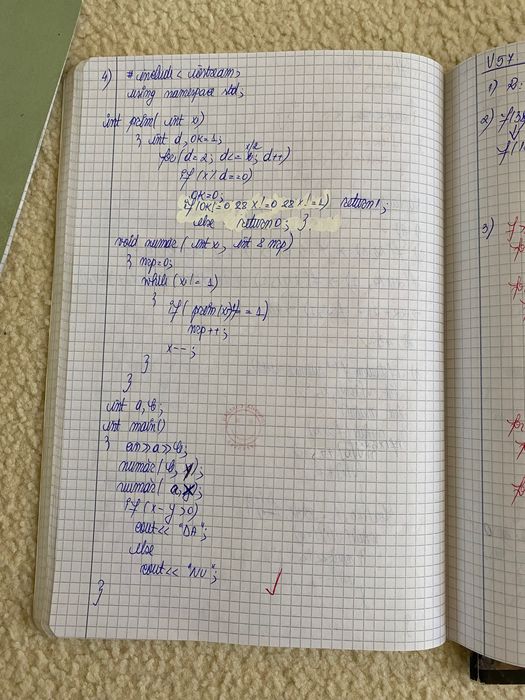 4) # include < iostream;
using namespace std;
int prim( int x)
{ int d, OK=1;
for (d=2; d<=x/2; d++)
if (x % d==0)
OK=0;
if (OK!=0 && x!=0 && x!=1) return 1;
else return 0; }
void numar( int x, int & nrp)
{ nrp=0;
while (x!=1)
{
if( prim(x)==1)
nrp++;
x--;
}
}
int a, b;
int main()
{ cin>>a>>b;
numar( b, y);
numar( a, x);
if (x-y>0)
cout<< "DA";
else
cout<< "NU";
}
V57
1)
2)
3)